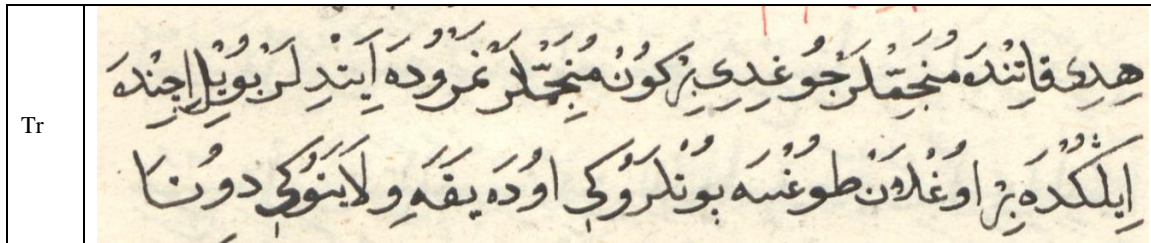 Tr
هِدِى قاتِنْدَه مُنَجِّمْلَرْ جُوغِدِى بِرْ كُونْ مُنَجِّمْلَرْ نَمْرُودَه اَيِتْدِلَرْ بُو يِلْ اِچِنْدَه
اِيلُكْدَه بِرْ اوُغْلَانْ طوُغِسَه بوُنْلَرُوكِ اوُدَه يَقَه وِلَايَتوُكِ دوُتَا